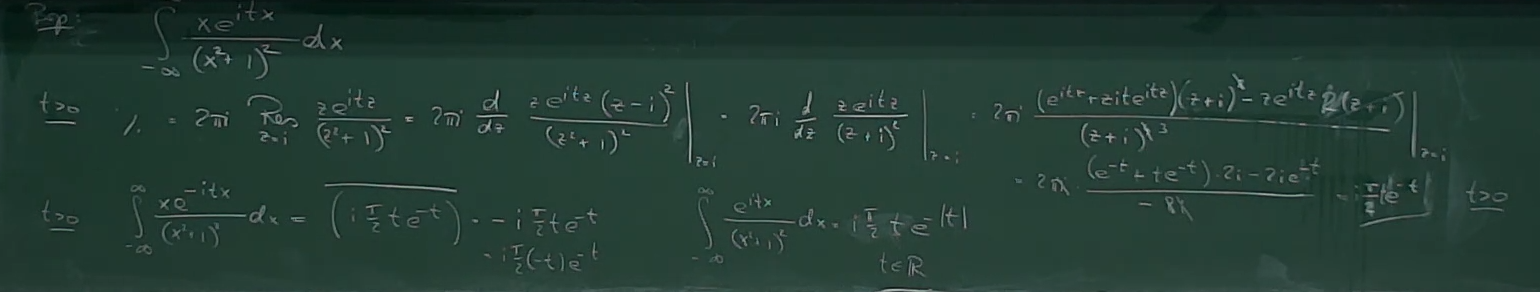 ∫_{-∞}^{∞} \frac{x e^{itx}}{(x²+1)²} dx
t>0 = 2πi Res_{z=i} \frac{z e^{itz}}{(z²+1)²} = 2πi \frac{d}{dz} \frac{z e^{itz} (z-i)²}{(z²+1)²} |_{z=i} = 2πi \frac{d}{dz} \frac{z e^{itz}}{(z+i)²} |_{z=i} = 2πi \frac{(e^{itz} + z it e^{itz})(z+i)^{2} - z e^{itz} 2(z+i)}{(z+i)^{4 3}} |_{z=i}
= 2πi · \frac{(e^{-t} - t e^{-t}) · 2i - 2i e^{-t}}{-8i} = i \frac{π}{2} t e^{-t} t>0
t>0 ∫_{-∞}^{∞} \frac{x e^{-itx}}{(x²+1)²} dx = \overline{(i \frac{π}{2} t e^{-t})} = -i \frac{π}{2} t e^{-t}
= i \frac{π}{2} (-t) e^{-t}
∫_{-∞}^{∞} \frac{e^{itx}}{(x²+1)²} dx = i \frac{π}{2} t e^{-|t|}
t∈ℝ